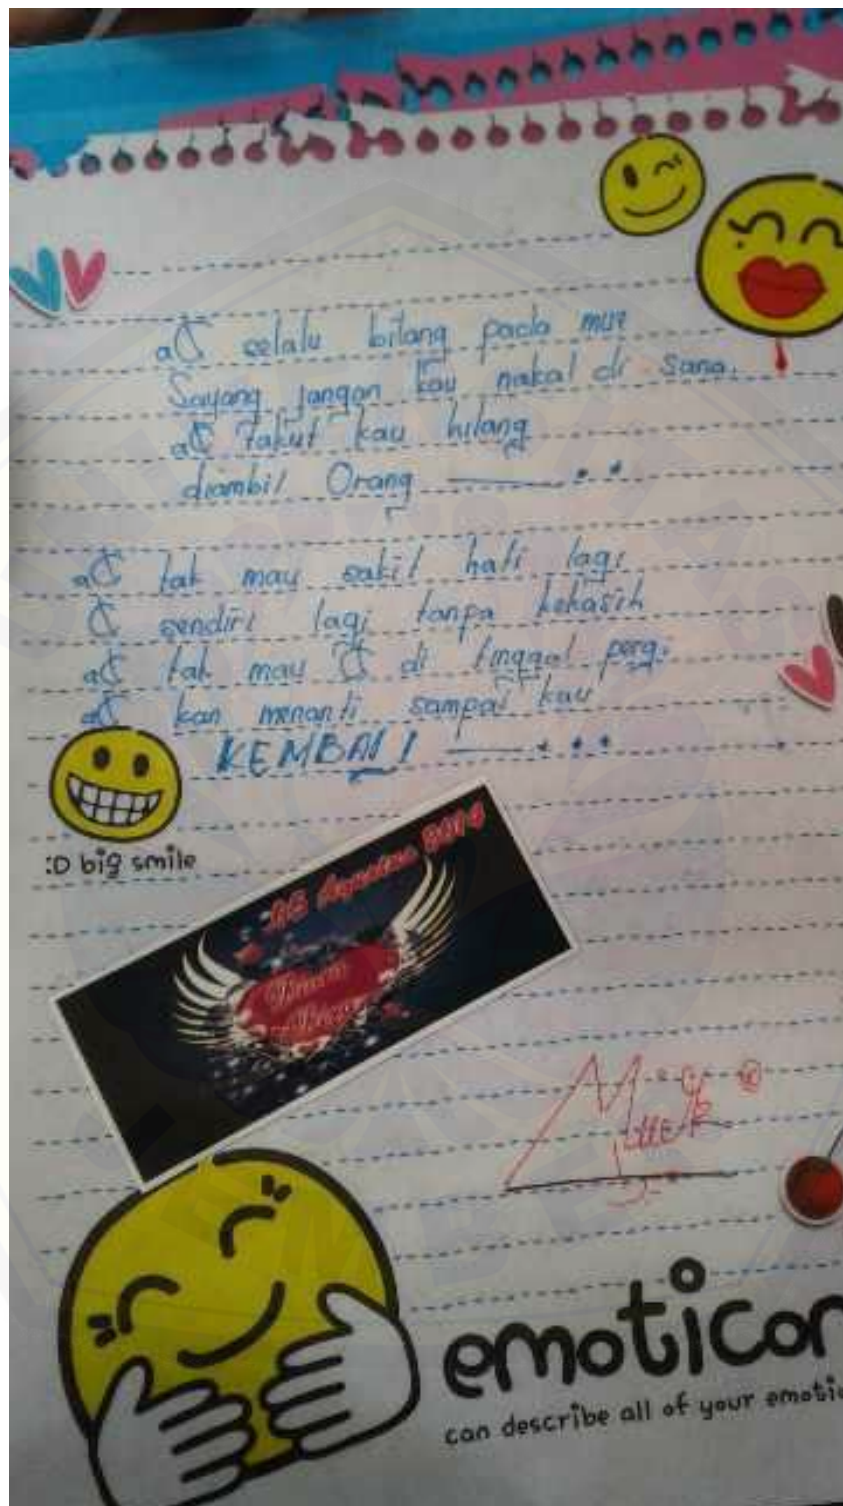 aC selalu bilang pada mu?
Sayang jangan kau nakal di sana.
aC takut kau hilang
diambil Orang
aC tak mau sakit hati lagi
C sendiri lagi tanpa kekasih
aC tak mau C di tinggal pergi
aC kan menanti sampai kau
KEMBALI
:D big smile
15 Agustus 2014
emoticon
can describe all of your emotio